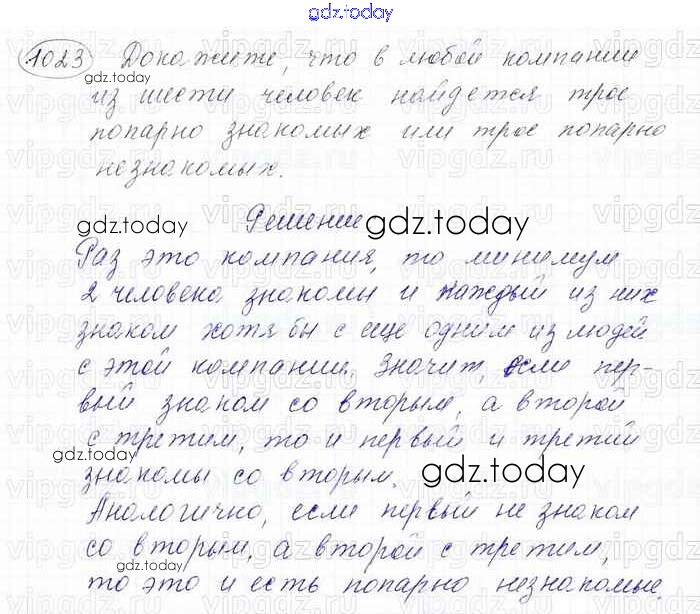 gdz.today
1023 Докажите, что в любой компании
gdz.today
из шести человек найдется трое
попарно знакомых или трое попарно
незнакомых.
gdz.today Решение gdz.today
Раз это компания, то минимум
2 человека знакомы и каждый из них
знаком хотя бы с еще одним из людей
с этой компании. Значит, если пер-
вый знаком со вторым, а второй
с третим, то и первый и третий
gdz.today
знакомы со вторым. gdz.today
Аналогично, если первый не знаком
со вторым, а второй с третим,
gdz.today
то это и есть попарно незнакомые.